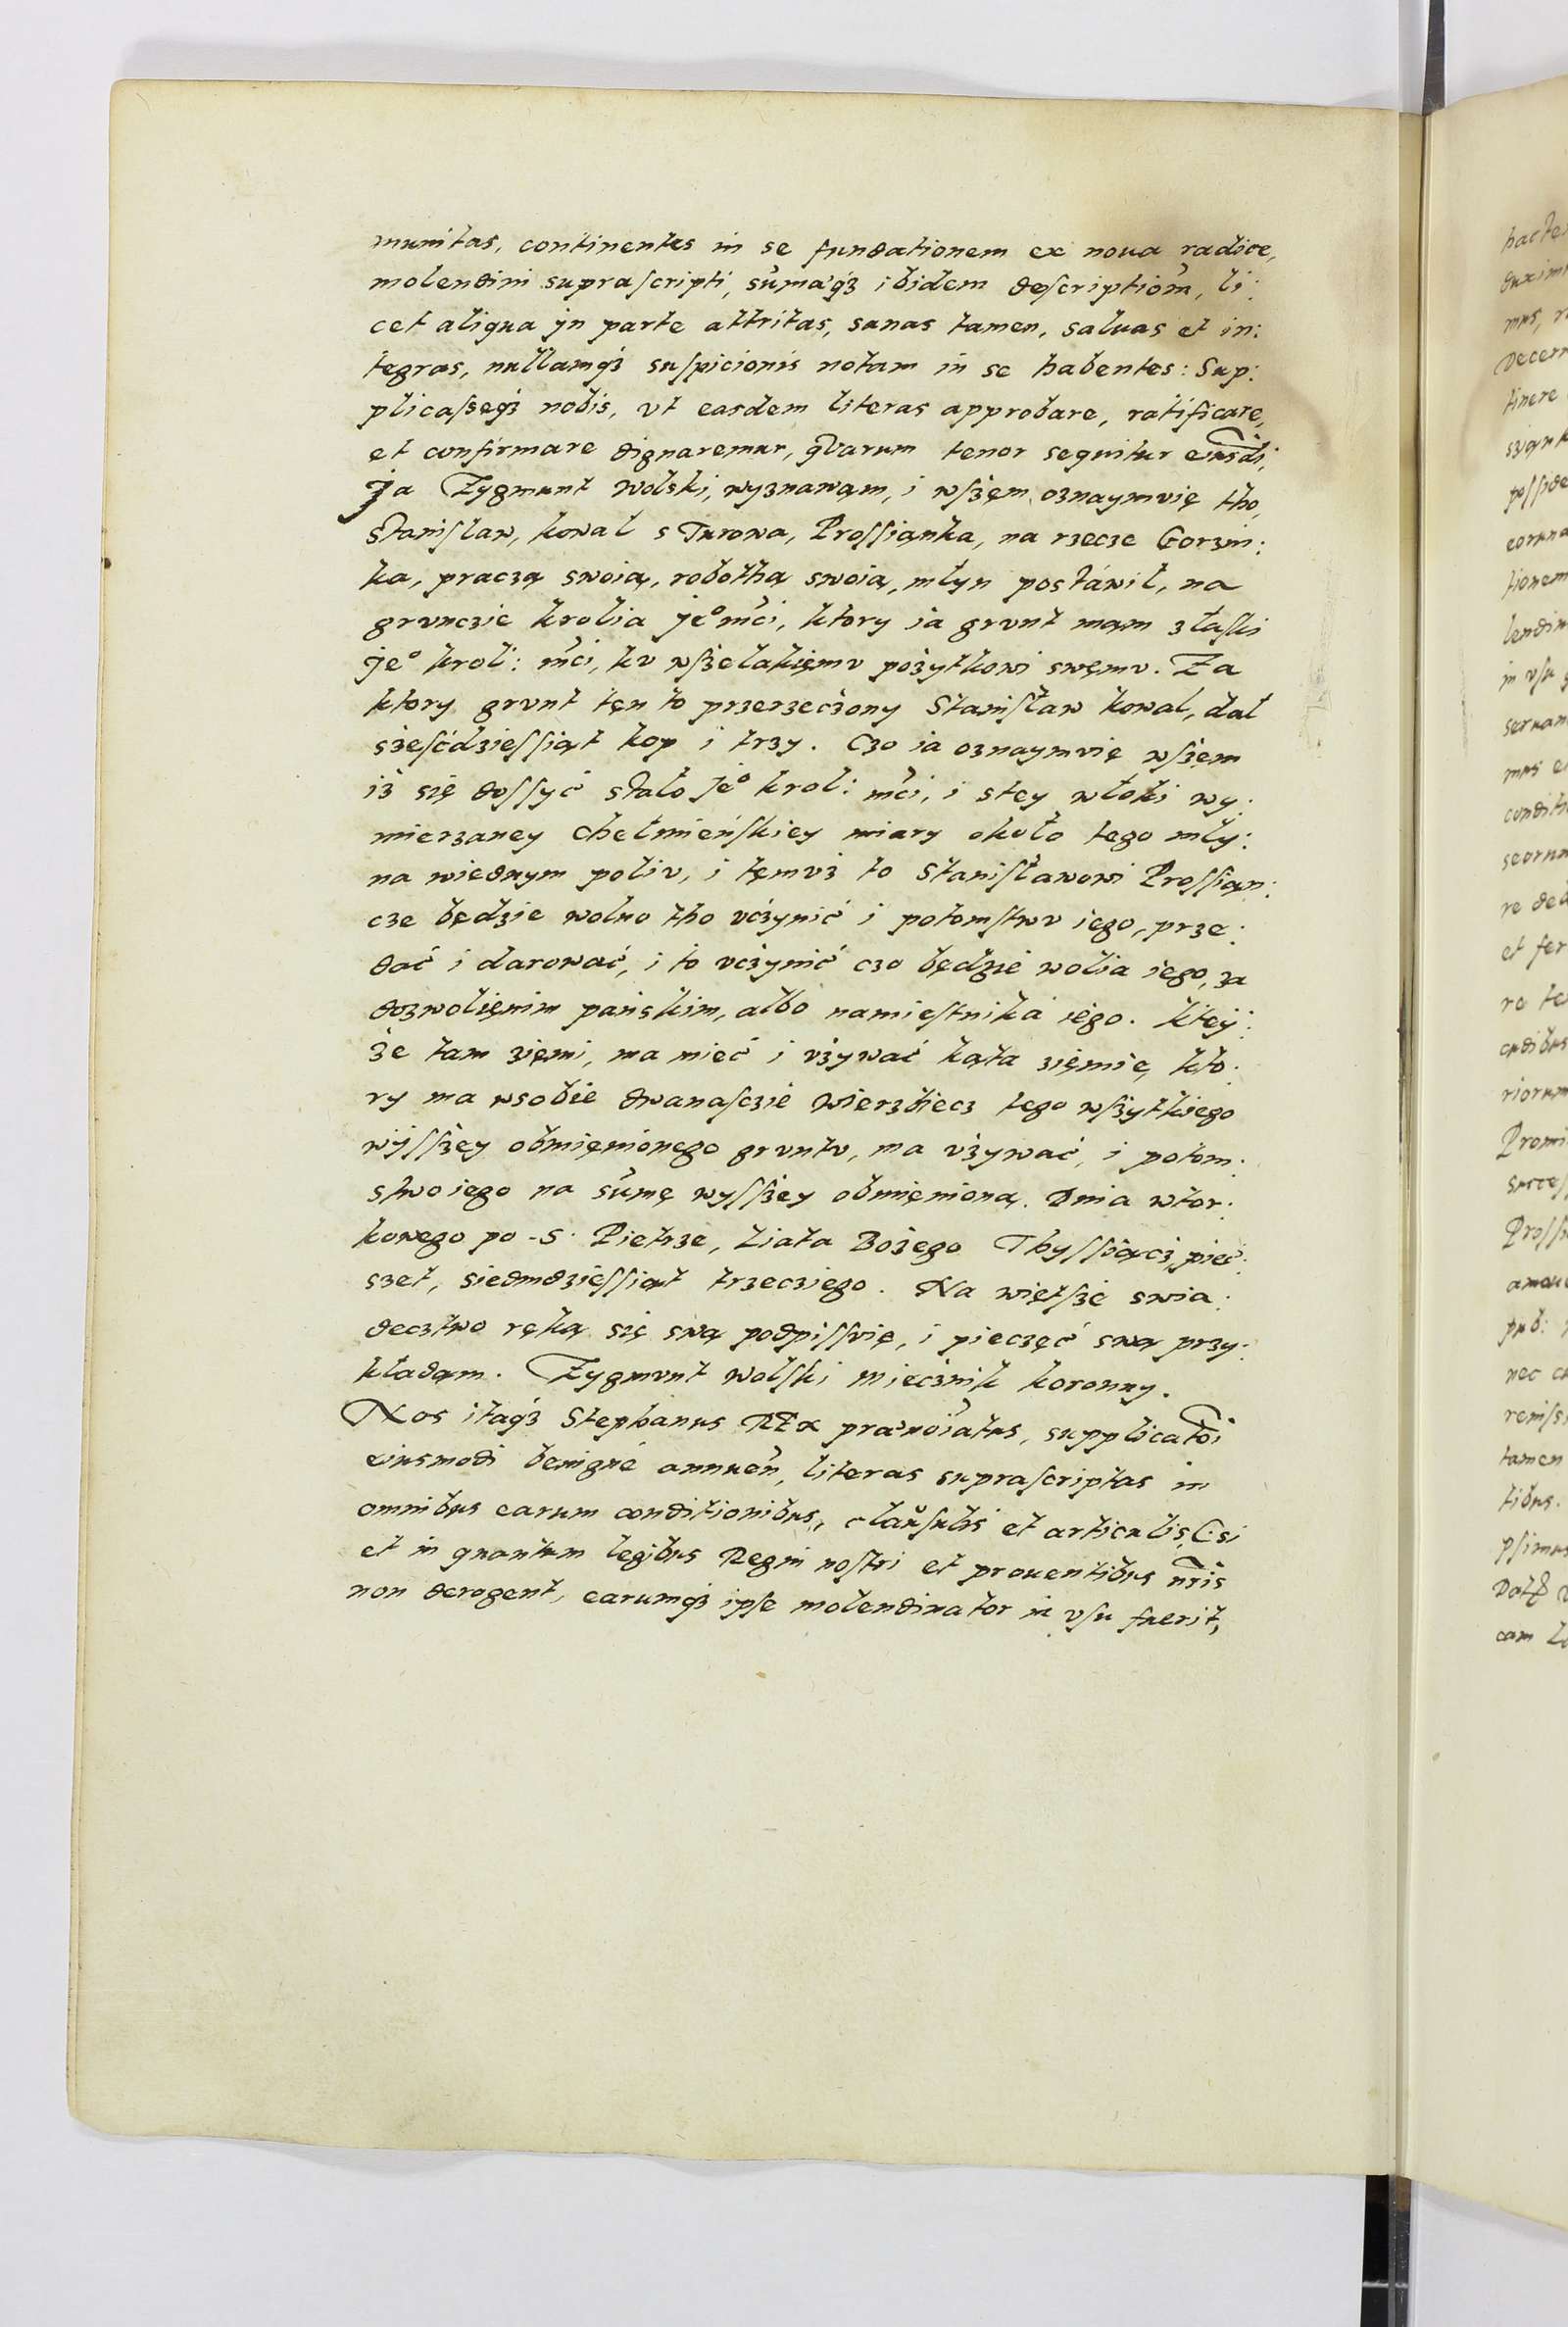 munitas, continentes in se fundationem ex noua radice,
molendini suprascripti, sūmaq́3 ibidem descriptiom̄, li:
cet aliqua jn parte attritas, sanas tamen, saluas et in:
tegras, nullamq́3 suspicionis notam in se habentes: Sup:
plicasseq́3 nobis, vt easdem literas approbare, ratificare,
et confirmare dignaremur, qvarum tenor sequitur eiusdi,
Ja Zygmunt Wolski, wyznawąm, i wsżęm oznaymvię tho,
Stanisław, kowal s Turowa, Prossiąnka, na rzecze Gorzni:
ka, praczą swoią, robothą swoią, młyn postáwił, na
grvnczie krolia je° mći, ktory ia grvnt mąm złaski
je° krol: mći, kv wsżelakięmv pożytkowi swęmv. Za
ktory grvnt tęn to przerzeczony Stanisław kowal, dał
sześćdziessiąt kop i trzy. Czo ia oznaymvię wsżęm
iż się dossyć stało je° krol: mći, i stey włoki wy:
mierzaney chełmieńskiey miary około tego mły:
na wiednym poliv, i tęmvż to Stanisławowi Prossiąn:
cze będzie wolno tho vczynić i potomstwv iego, prze:
dać i darować, i to vczynić czo będzie wolia iego, za
dozwolięnim pańskim, albo namiestnika iego. Ktej:
że tam zięmi, ma mieć i vżywać kąta zięmię, kto:
ry ma wsobie dwanasczie wierzbiecz tego wsżytkiego
wyssżey obmięnionego grvntv, ma vżywać, i potom:
stwo iego na sūmę wyssżey obmięnioną. Dnia wtor:
kowego po S. Pietrze, liata Bożego Thyssiącz, pięć:
szet, siedmdziessiąt trzecziego. Na więtsżé swia:
decztwo ręką się swą podpissvię, i pieczęć swą przy:
kładąm. Zygmvnt Wolski Miecznik koronny.
Nos itaq́3 Stephanus REx prænoiatus, supplicatōi
eiusmodi benigné annueñ, literas suprascriptas in
omnibus earum conditionibus, claŭsulis et articulis, (: si
et in quantum legibus Regni nostri et prouentibus nr̄is
non derogent, earumq́3 ipse molendinator in vsu fuerit,